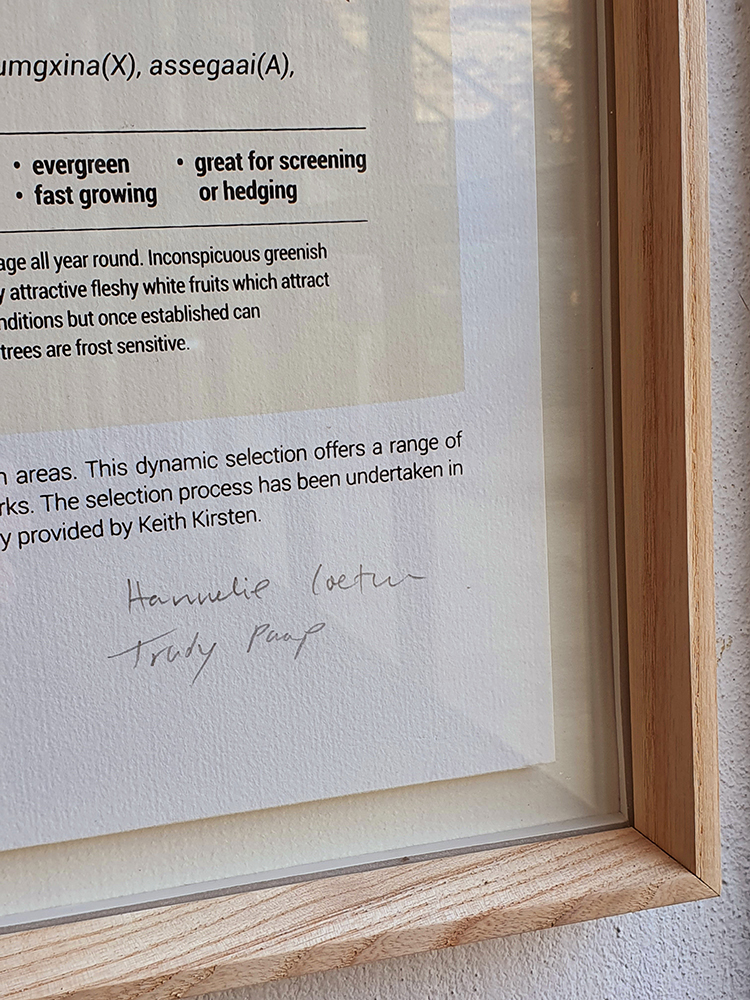 umgxina(X), assegaai(A),
• evergreen • great for screening
• fast growing or hedging
age all year round. Inconspicuous greenish
y attractive fleshy white fruits which attract
nditions but once established can
trees are frost sensitive.
n areas. This dynamic selection offers a range of
rks. The selection process has been undertaken in
y provided by Keith Kirsten.
Hannelie
Trudy Paap